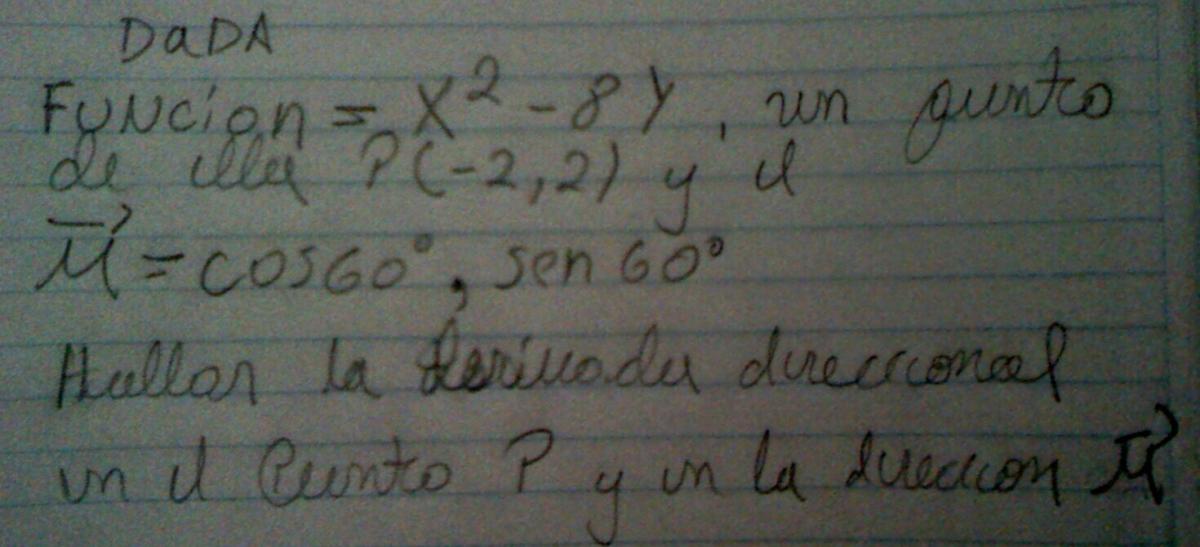 DaDA
FUNCion = X² - 8Y, un punto
de ella P(-2,2) y el
μ⃗ = COS60°, sen 60°
Hallar la derivada direccional
en el Punto P y en la direccion μ⃗